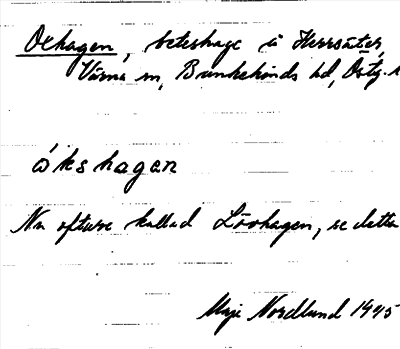 Oxhagen, beteshage å Herrsäter,
Värna sn, Bankekinds hd, Östg.
ókshagan
Nu oftare kallad Lövhagen, se detta
Maje Nordlund 1945